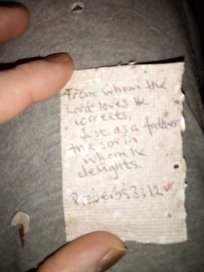 From whom the
Lord loves He
corrects,
Just as a father
the son in
whom he
delights.
Proverbs 3:12